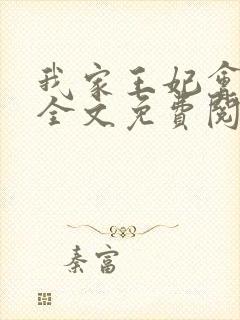 我家王妃會
全文免費閱
秦富